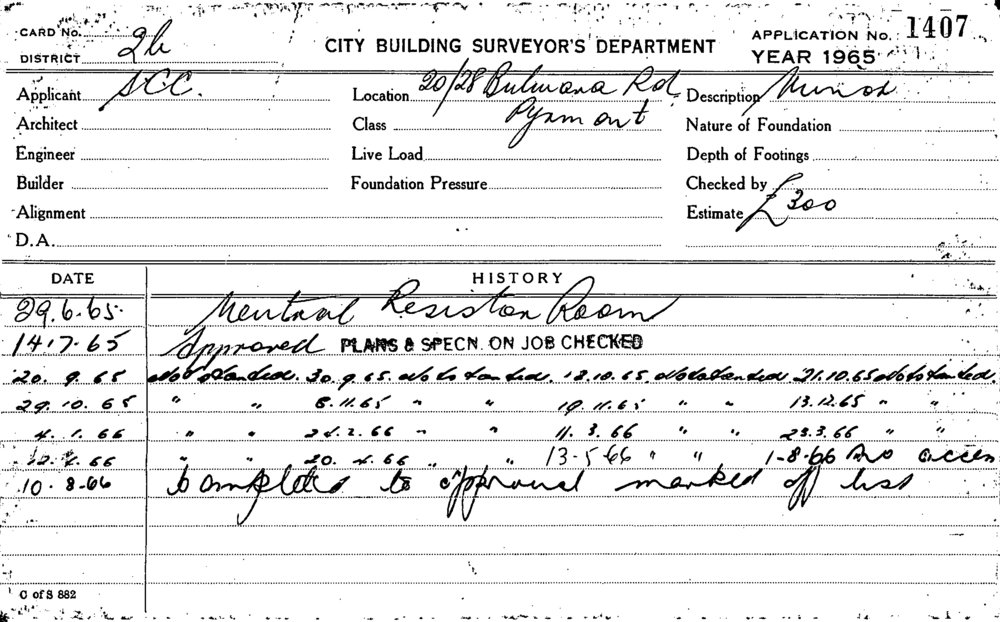 CARD No. CITY BUILDING SURVEYOR'S DEPARTMENT APPLICATION No. 1407
DISTRICT 2b YEAR 1965
Applicant SCC. Location 20/28 Bulwara Rd Description Minor
Architect Class Pyrmont Nature of Foundation
Engineer Live Load Depth of Footings
Builder Foundation Pressure Checked by
Alignment Estimate £300
D.A.
DATE HISTORY
29.6.65. Neutral Resistor Room
14.7.65 Approved PLANS & SPECN. ON JOB CHECKED
20. 9. 65 Not started. 30.9.65. Not started. 18.10.65. Not started 21.10.65 Not started.
29. 10. 65 " " 8.11.65 " " 19.11.65 " " 13.12.65 " "
4. 1. 66 " " 24.2.66 " " 11.3.66 " " 23.3.66 " "
12. 4. 66 " " 20. 4. 66 " " 13-5-66 " " 1-8-66 No access
10.8.66 Completed to approval marked off list
C of S 882